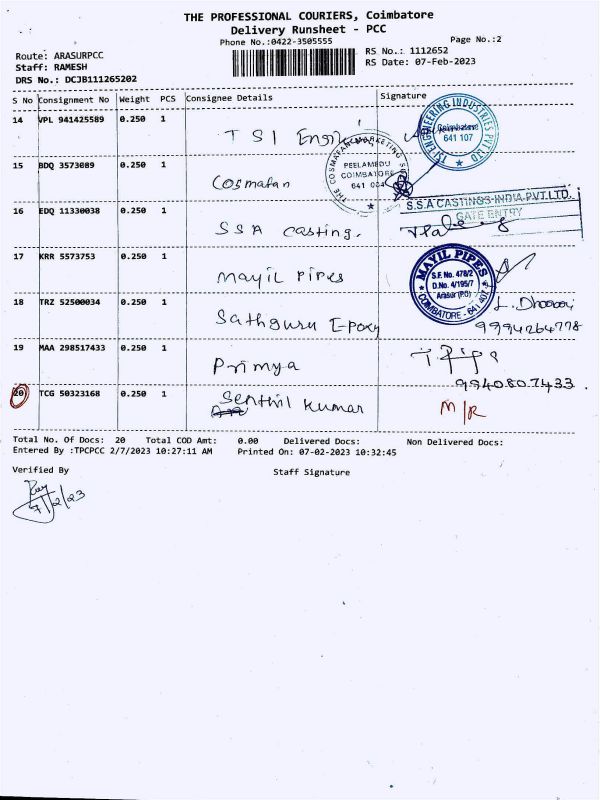 THE PROFESSIONAL COURIERS, Coimbatore
Delivery Runsheet - PCC
Phone No.:0422-3505555
Page No.:2
Route: ARASURPCC
Staff: RAMESH
DRS No.: DCJB111265202
RS No.: 1112652
RS Date: 07-Feb-2023
S No Consignment No Weight PCS Consignee Details Signature
14 VPL 941425589 0.250 1 TSI Engg
TSI ENGINEERING INDUSTRIES PVT LTD
Coimbatore
641 107
15 BDQ 3573089 0.250 1 Cosmafan
THE COSMAFAN MARKETING
PEELAMEDU
COIMBATORE
641 004
16 EDQ 11330038 0.250 1 SSA casting.
S.S.A CASTINGS INDIA PVT.LTD.
GATE ENTRY
17 KRR 5573753 0.250 1 Mayil Pipes
MAYIL PIPES
S.F. No. 478/2
D.No. 4/195/7
Arasur (P.O)
COIMBATORE - 641 407
18 TRZ 52500034 0.250 1 Sathguru Epoxy
9994264778
19 MAA 298517433 0.250 1 Primya
9940807433.
20 TCG 50323168 0.250 1 Senthil Kumar M/R
Total No. Of Docs: 20 Total COD Amt: 0.00 Delivered Docs: Non Delivered Docs:
Entered By :TPCPCC 2/7/2023 10:27:11 AM Printed On: 07-02-2023 10:32:45
Verified By Staff Signature
7/2/23